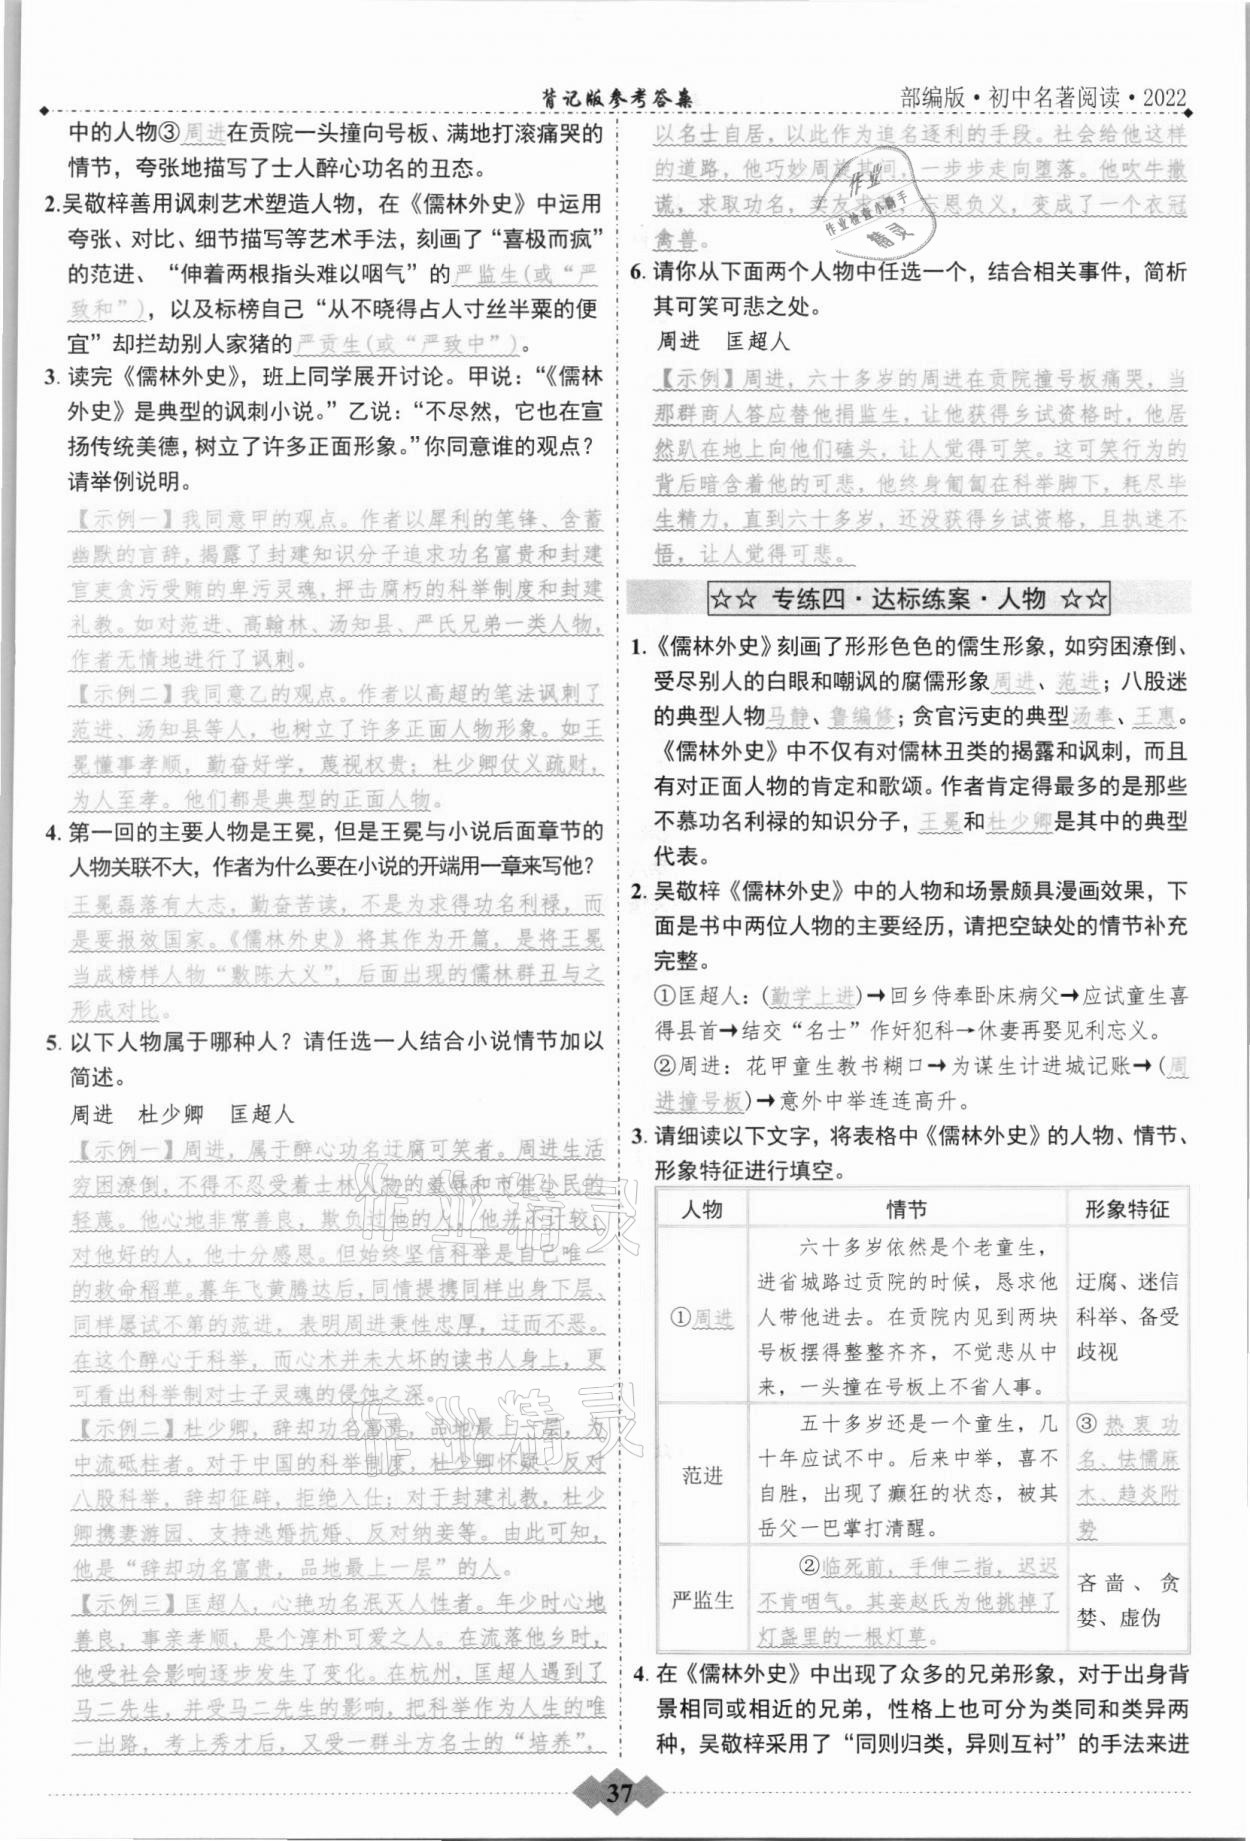 背记版参考答案
部编版·初中名著阅读·2022
中的人物③周进在贡院一头撞向号板、满地打滚痛哭的
情节，夸张地描写了士人醉心功名的丑态。
2.吴敬梓善用讽刺艺术塑造人物，在《儒林外史》中运用
夸张、对比、细节描写等艺术手法，刻画了“喜极而疯”
的范进、“伸着两根指头难以咽气”的严监生(或“严
致和”)，以及标榜自己“从不晓得占人寸丝半粟的便
宜”却拦劫别人家猪的严贡生(或“严致中”)。
3. 读完《儒林外史》，班上同学展开讨论。甲说：“《儒林
外史》是典型的讽刺小说。”乙说：“不尽然，它也在宣
扬传统美德，树立了许多正面形象。”你同意谁的观点？
请举例说明。
【示例一】我同意甲的观点。作者以犀利的笔锋、含蓄
幽默的言辞，揭露了封建知识分子追求功名富贵和封建
官吏贪污受贿的卑污灵魂，抨击腐朽的科举制度和封建
礼教。如对范进、高翰林、汤知县、严氏兄弟一类人物，
作者无情地进行了讽刺。
【示例二】我同意乙的观点。作者以高超的笔法讽刺了
范进、汤知县等人，也树立了许多正面人物形象。如王
冕懂事孝顺，勤奋好学，蔑视权贵；杜少卿仗义疏财，
为人至孝。他们都是典型的正面人物。
4. 第一回的主要人物是王冕，但是王冕与小说后面章节的
人物关联不大，作者为什么要在小说的开端用一章来写他？
王冕磊落有大志，勤奋苦读，不是为求得功名利禄，而
是要报效国家。《儒林外史》将其作为开篇，是将王冕
当成榜样人物“敷陈大义”，后面出现的儒林群丑与之
形成对比。
5. 以下人物属于哪种人？请任选一人结合小说情节加以
简述。
周进　杜少卿　匡超人
【示例一】周进，属于醉心功名迂腐可笑者。周进生活
穷困潦倒，不得不忍受着士林人物的羞辱和市井小民的
轻蔑。他心地非常善良，欺负过他的人，他并不计较；
对他好的人，他十分感恩。但始终坚信科举是自己唯一
的救命稻草。暮年飞黄腾达后，同情提携同样出身下层、
同样屡试不第的范进，表明周进秉性忠厚，迂而不恶。
在这个醉心于科举，而心术并未大坏的读书人身上，更
可看出科举制对士子灵魂的侵蚀之深。
【示例二】杜少卿，辞却功名富贵，品地最上一层，为
中流砥柱者。对于中国的科举制度，杜少卿怀疑、反对
八股科举，辞却征辟，拒绝入仕；对于封建礼教，杜少
卿携妻游园、支持逃婚抗婚、反对纳妾等。由此可知，
他是“辞却功名富贵，品地最上一层”的人。
【示例三】匡超人，心艳功名泯灭人性者。年少时心地
善良，事亲孝顺，是个淳朴可爱之人。在流落他乡时，
他受社会影响逐步发生了变化。在杭州，匡超人遇到了
马二先生，并受马二先生的影响，把科举作为人生的唯
一出路，考上秀才后，又受一群斗方名士的“培养”，
以名士自居，以此作为追名逐利的手段。社会给他这样
的道路，他巧妙周旋其间，一步步走向堕落。他吹牛撒
谎，求取功名，卖友求荣，忘恩负义，变成了一个衣冠
禽兽。
6. 请你从下面两个人物中任选一个，结合相关事件，简析
其可笑可悲之处。
周进　匡超人
【示例】周进，六十多岁的周进在贡院撞号板痛哭，当
那群商人答应替他捐监生，让他获得乡试资格时，他居
然趴在地上向他们磕头，让人觉得可笑。这可笑行为的
背后暗含着他的可悲，他终身匍匐在科举脚下，耗尽毕
生精力，直到六十多岁，还没获得乡试资格，且执迷不
悟，让人觉得可悲。
☆☆ 专练四·达标练案·人物 ☆☆
1.《儒林外史》刻画了形形色色的儒生形象，如穷困潦倒、
受尽别人的白眼和嘲讽的腐儒形象周进、范进；八股迷
的典型人物马静、鲁编修；贪官污吏的典型汤奉、王惠。
《儒林外史》中不仅有对儒林丑类的揭露和讽刺，而且
有对正面人物的肯定和歌颂。作者肯定得最多的是那些
不慕功名利禄的知识分子，王冕和杜少卿是其中的典型
代表。
2. 吴敬梓《儒林外史》中的人物和场景颇具漫画效果，下
面是书中两位人物的主要经历，请把空缺处的情节补充
完整。
①匡超人：(勤学上进)→回乡侍奉卧床病父→应试童生喜
得县首→结交“名士”作奸犯科→休妻再娶见利忘义。
②周进：花甲童生教书糊口→为谋生计进城记账→(周
进撞号板)→意外中举连连高升。
3. 请细读以下文字，将表格中《儒林外史》的人物、情节、
形象特征进行填空。
人物　情节　形象特征
①周进
六十多岁依然是个老童生，
进省城路过贡院的时候，恳求他
人带他进去。在贡院内见到两块
号板摆得整整齐齐，不觉悲从中
来，一头撞在号板上不省人事。
迂腐、迷信
科举、备受
歧视
范进
五十多岁还是一个童生，几
十年应试不中。后来中举，喜不
自胜，出现了癫狂的状态，被其
岳父一巴掌打清醒。
③热衷功
名、怯懦麻
木、趋炎附
势
严监生
②临死前，手伸二指，迟迟
不肯咽气。其妾赵氏为他挑掉了
灯盏里的一根灯草。
吝啬、贪
婪、虚伪
4. 在《儒林外史》中出现了众多的兄弟形象，对于出身背
景相同或相近的兄弟，性格上也可分为类同和类异两
种，吴敬梓采用了“同则归类，异则互衬”的手法来进
37
作业
作业检查小助手
精灵
作业精灵
作业精灵